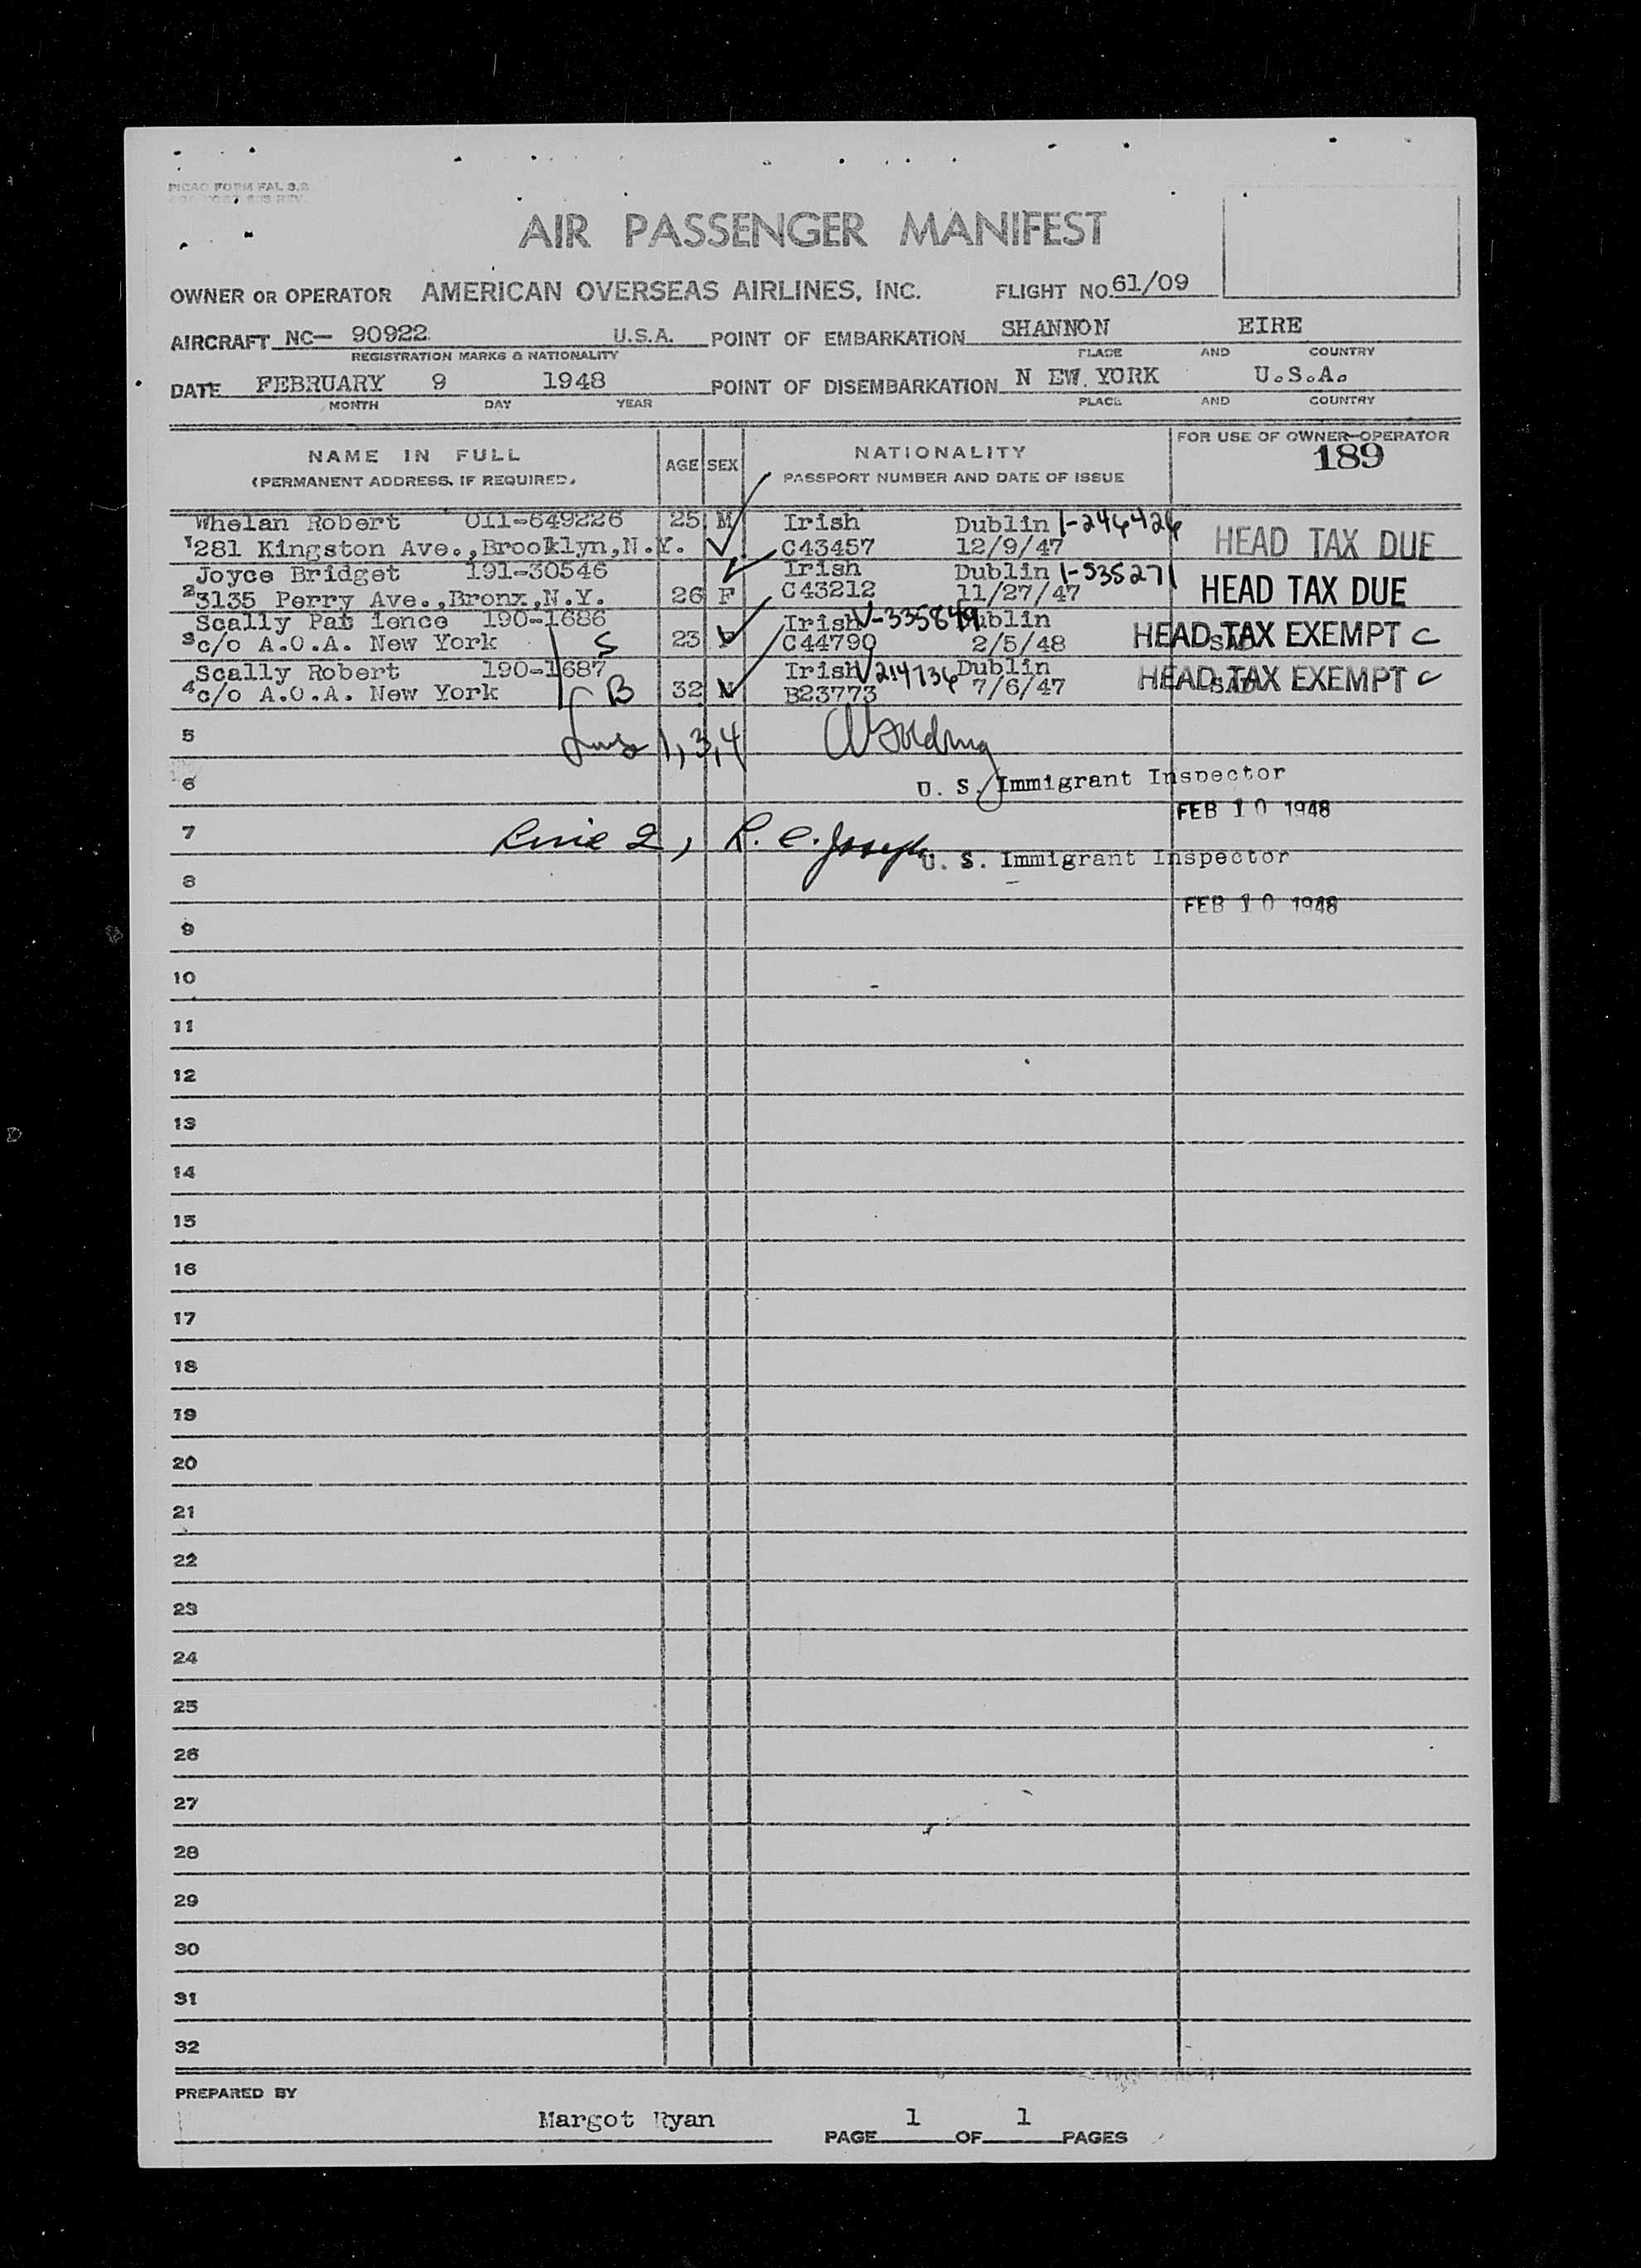 PICAO FORM FAL 3.2
AIR PASSENGER MANIFEST
OWNER OR OPERATOR AMERICAN OVERSEAS AIRLINES, INC. FLIGHT NO. 61/09
AIRCRAFT NC— 90922 U.S.A. POINT OF EMBARKATION SHANNON EIRE
REGISTRATION MARKS & NATIONALITY PLACE AND COUNTRY
DATE FEBRUARY 9 1948 POINT OF DISEMBARKATION N EW YORK U.S.A.
MONTH DAY YEAR PLACE AND COUNTRY
NAME IN FULL AGE SEX NATIONALITY FOR USE OF OWNER-OPERATOR
(PERMANENT ADDRESS, IF REQUIRED. PASSPORT NUMBER AND DATE OF ISSUE 189
Whelan Robert 011-649226 25 M Irish Dublin 1-246426
1 281 Kingston Ave., Brooklyn, N.Y. C43457 12/9/47 HEAD TAX DUE
Joyce Bridget 191-30546 Irish Dublin 1-535271
2 3135 Perry Ave., Bronx, N.Y. 26 F C43212 11/27/47 HEAD TAX DUE
Scally Pat ience 190-1686 Irish V-335849 Dublin
3 c/o A.O.A. New York S 23 F C44790 2/5/48 HEAD TAX EXEMPT C
Scally Robert 190-1687 Irish V214736 Dublin
4 c/o A.O.A. New York B 32 M B23773 7/6/47 HEAD TAX EXEMPT C
5 1, 3, 4
6 U. S. Immigrant Inspector
FEB 10 1948
7 Line 2, R. C. Joseph U. S. Immigrant Inspector
8
FEB 10 1948
9
10
11
12
13
14
15
16
17
18
19
20
21
22
23
24
25
26
27
28
29
30
31
32
PREPARED BY
Margot Ryan PAGE 1 OF 1 PAGES